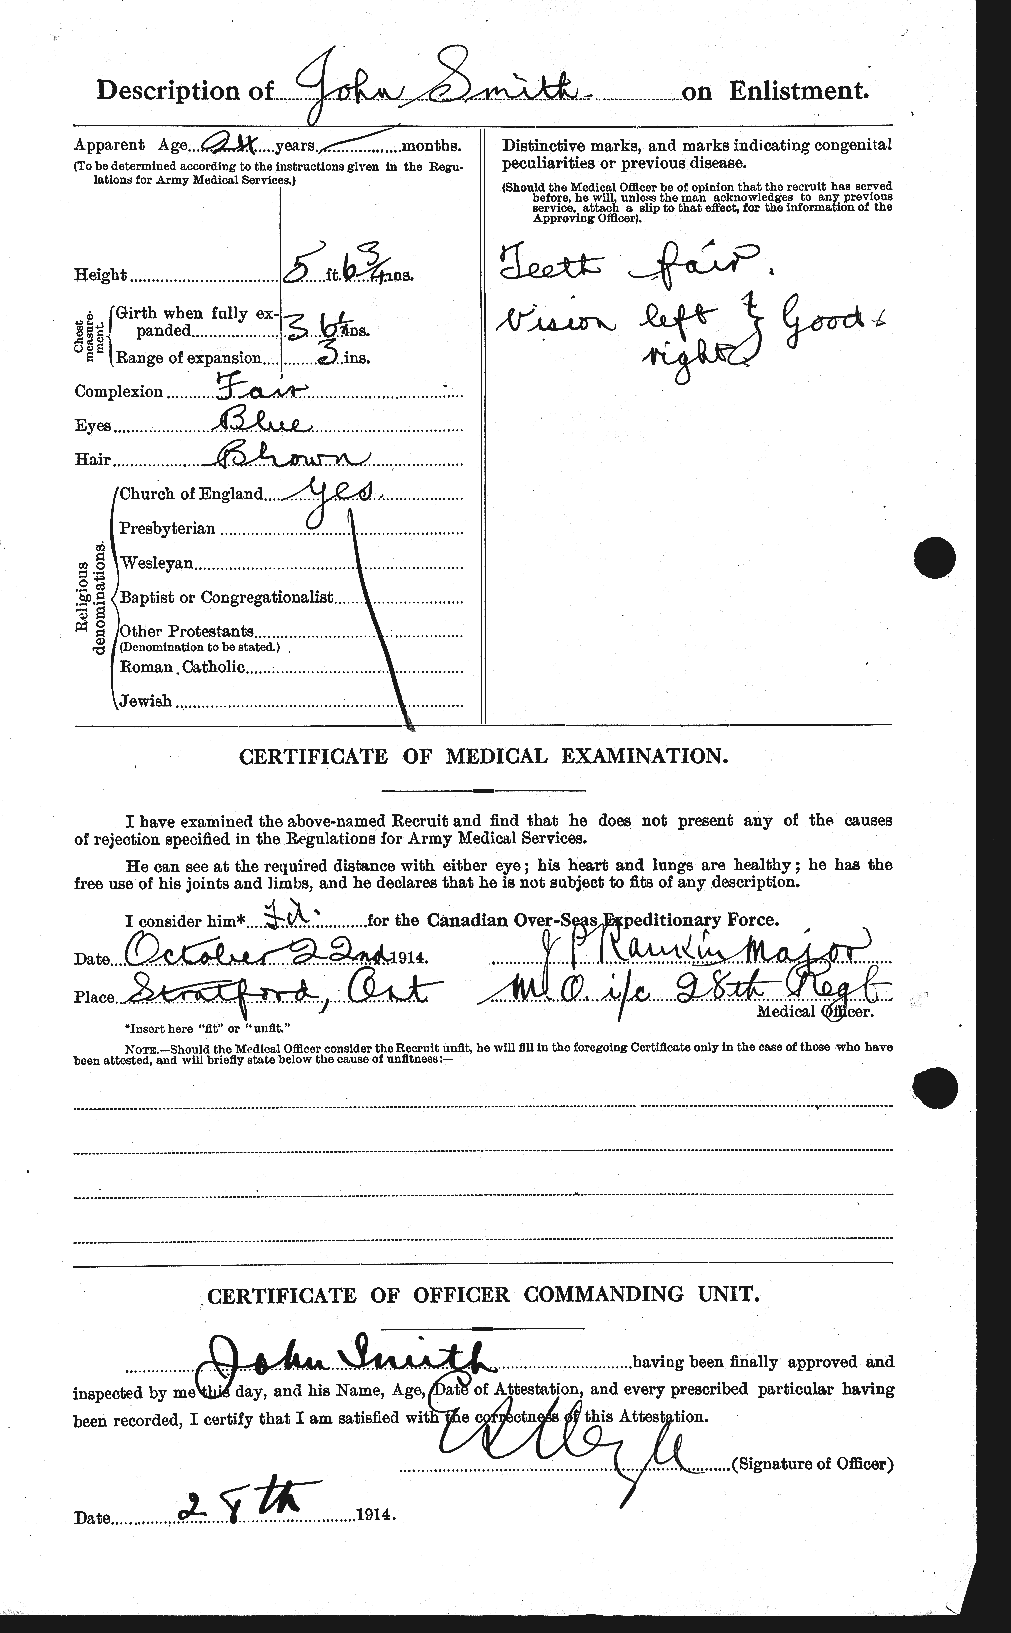 Description of John Smith on Enlistment.
Apparent Age 24 years months.
(To be determined according to the instructions given in the Regu-
lations for Army Medical Services.)
Height 5 ft. 6 3/4 ins.
Chest measure-ment.
Girth when fully ex-
panded 36 1/2 ins.
Range of expansion 3 ins.
Complexion Fair
Eyes Blue
Hair Brown
Religious denominations.
Church of England yes.
Presbyterian
Wesleyan
Baptist or Congregationalist
Other Protestants
(Denomination to be stated.)
Roman Catholic
Jewish
Distinctive marks, and marks indicating congenital
peculiarities or previous disease.
(Should the Medical Officer be of opinion that the recruit has served
before, he will, unless the man acknowledges to any previous
service, attach a slip to that effect, for the information of the
Approving Officer).
Teeth fair.
Vision left & Good
right
CERTIFICATE OF MEDICAL EXAMINATION.
I have examined the above-named Recruit and find that he does not present any of the causes
of rejection specified in the Regulations for Army Medical Services.
He can see at the required distance with either eye; his heart and lungs are healthy; he has the
free use of his joints and limbs, and he declares that he is not subject to fits of any description.
I consider him* Fit for the Canadian Over-Seas Expeditionary Force.
Date October 22nd 1914. J P Rankin Major
Place Stratford, Ont M.O. i/c 28th Regt
Medical Officer.
*Insert here "fit" or "unfit."
NOTE.—Should the Medical Officer consider the Recruit unfit, he will fill in the foregoing Certificate only in the case of those who have
been attested, and will briefly state below the cause of unfitness:—
CERTIFICATE OF OFFICER COMMANDING UNIT.
John Smith having been finally approved and
inspected by me this day, and his Name, Age, Date of Attestation, and every prescribed particular having
been recorded, I certify that I am satisfied with the correctness of this Attestation.
(Signature of Officer)
Date 28th 1914.